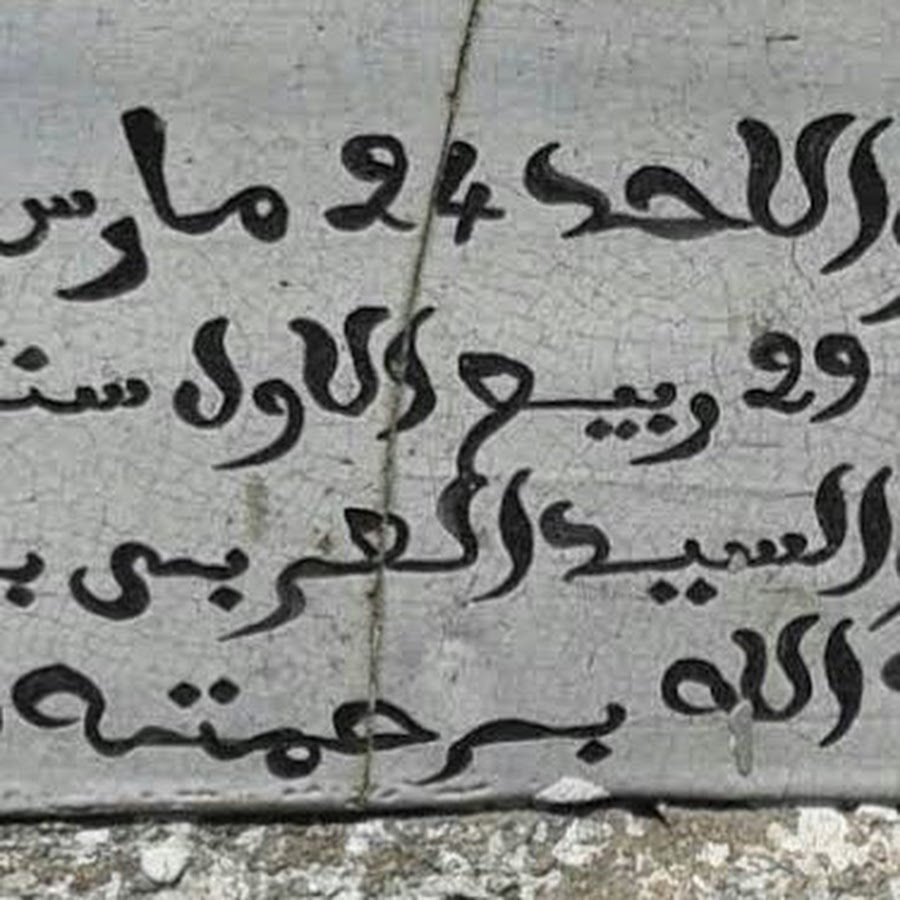 الاحد 24 مارس
29 ربيع الاول
السيد العربي
الله برحمته